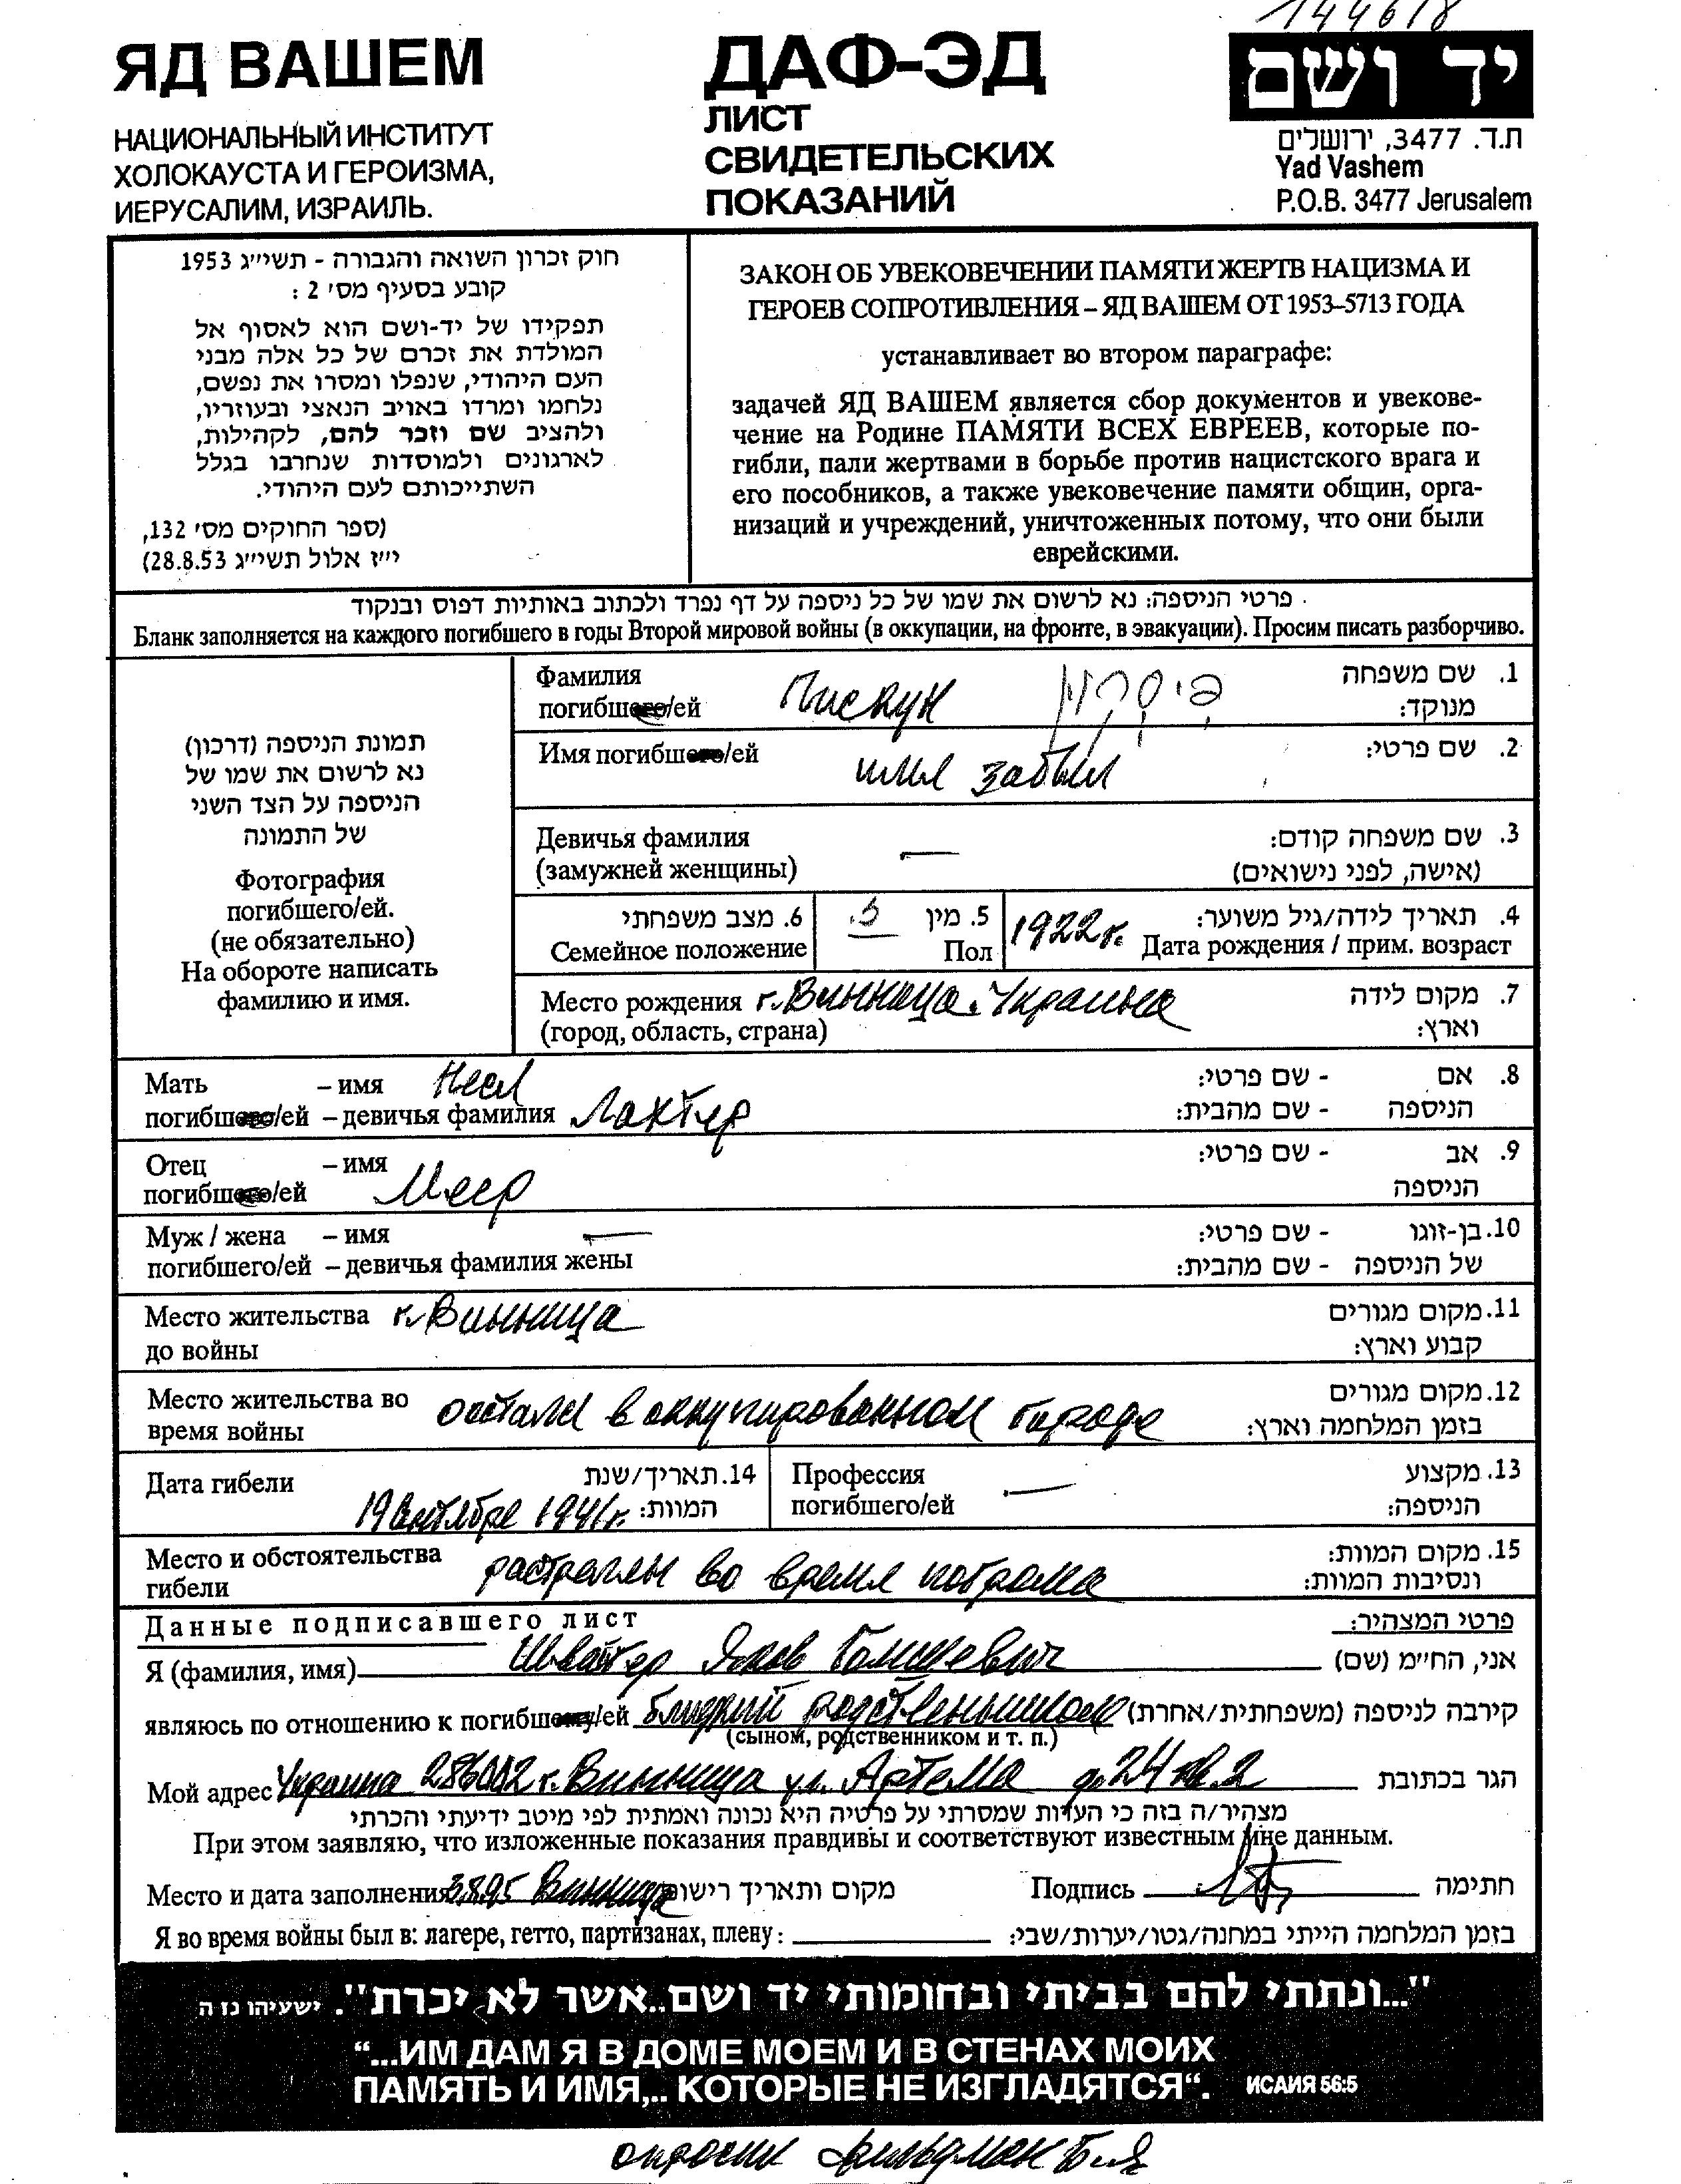 144618
ЯД ВАШЕМ
НАЦИОНАЛЬНЫЙ ИНСТИТУТ
ХОЛОКАУСТА И ГЕРОИЗМА,
ИЕРУСАЛИМ, ИЗРАИЛЬ.
ДАФ-ЭД
ЛИСТ
СВИДЕТЕЛЬСКИХ
ПОКАЗАНИЙ
יד ושם
ת.ד. 3477, ירושלים
Yad Vashem
P.O.B. 3477 Jerusalem
חוק זכרון השואה והגבורה - תשי״ג 1953
קובע בסעיף מס׳ 2 :
תפקידו של יד-ושם הוא לאסוף אל
המולדת את זכרם של כל אלה מבני
העם היהודי, שנפלו ומסרו את נפשם,
נלחמו ומרדו באויב הנאצי ובעוזריו,
ולהציב שם וזכר להם, לקהילות,
לארגונים ולמוסדות שנחרבו בגלל
השתייכותם לעם היהודי.
(ספר החוקים מס׳ 132,
י״ז אלול תשי״ג 28.8.53)
ЗАКОН ОБ УВЕКОВЕЧЕНИИ ПАМЯТИ ЖЕРТВ НАЦИЗМА И
ГЕРОЕВ СОПРОТИВЛЕНИЯ – ЯД ВАШЕМ ОТ 1953–5713 ГОДА
устанавливает во втором параграфе:
задачей ЯД ВАШЕМ является сбор документов и увекове-
чение на Родине ПАМЯТИ ВСЕХ ЕВРЕЕВ, которые по-
гибли, пали жертвами в борьбе против нацистского врага и
его пособников, а также увековечение памяти общин, орга-
низаций и учреждений, уничтоженных потому, что они были
еврейскими.
פרטי הניספה: נא לרשום את שמו של כל ניספה על דף נפרד ולכתוב באותיות דפוס ובנקוד
Бланк заполняется на каждого погибшего в годы Второй мировой войны (в оккупации, на фронте, в эвакуации). Просим писать разборчиво.
תמונת הניספה (דרכון)
נא לרשום את שמו של
הניספה על הצד השני
של התמונה
Фотография
погибшего/ей.
(не обязательно)
На обороте написать
фамилию и имя.
Фамилия 1. שם משפחה
погибшего/ей Пискун פיסקון מנוקד:
Имя погибшего/ей имя забыл 2. שם פרטי:
Девичья фамилия — 3. שם משפחה קודם:
(замужней женщины) (אישה, לפני נישואים)
6. מצב משפחתי 5. מין 4. תאריך לידה/גיל משוער:
Семейное положение Пол 1922 г. Дата рождения / прим. возраст
Место рождения г. Винница. Украина 7. מקום לידה
(город, область, страна) וארץ:
Мать – имя 8. אם - שם פרטי:
погибшего/ей – девичья фамилия Лахтер הניספה - שם מהבית:
Отец – имя Меер 9. אב - שם פרטי:
погибшего/ей הניספה
Муж / жена – имя — 10. בן-זוגו - שם פרטי:
погибшего/ей – девичья фамилия жены של הניספה - שם מהבית:
Место жительства г. Винница 11. מקום מגורים
до войны קבוע וארץ:
Место жительства во 12. מקום מגורים
время войны остали в оккупированном городе בזמן המלחמה וארץ:
Дата гибели 14. תאריך/שנת
19 сентября 1941 г. המוות:
Профессия — 13. מקצוע
погибшего/ей הניספה:
Место и обстоятельства 15. מקום המוות:
гибели во время погрома ונסיבות המוות:
Данные подписавшего лист פרטי המצהיר:
Я (фамилия, имя) Швайгер Яков אני, הח״מ (שם)
являюсь по отношению к погибшему/ей близкий родственником קירבה לניספה (משפחתית/אחרת)
(сыном, родственником и т. п.)
Мой адрес Украина 286012 г. Винница ул. Артема д. 24 кв. 2 הגר בכתובת
מצהיר/ה בזה כי העדות שמסרתי על פרטיה היא נכונה ואמתית לפי מיטב ידיעתי והכרתי
При этом заявляю, что изложенные показания правдивы и соответствуют известным мне данным.
Место и дата заполнения 3.8.95 Винница מקום ותאריך רישום Подпись חתימה
Я во время войны был в: лагере, гетто, партизанах, плену: בזמן המלחמה הייתי במחנה/גטו/יערות/שבי:
״...ונתתי להם בביתי ובחומותי יד ושם..אשר לא יכרת״. ישעיהו נו ה
“...ИМ ДАМ Я В ДОМЕ МОЕМ И В СТЕНАХ МОИХ
ПАМЯТЬ И ИМЯ,.. КОТОРЫЕ НЕ ИЗГЛАДЯТСЯ“. ИСАИЯ 56:5
опросил